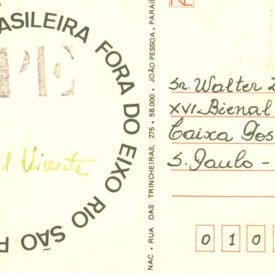 ASILEIRA FORA DO EIXO RIO SÃO P
PE
l Vicente
NAC • RUA DAS TRINCHEIRAS, 275 • 58.000 • JOÃO PESSOA, PARAÍ
Sr. Walter
XVI-Bienal
Caixa Pos
S. Paulo -
0 1 0